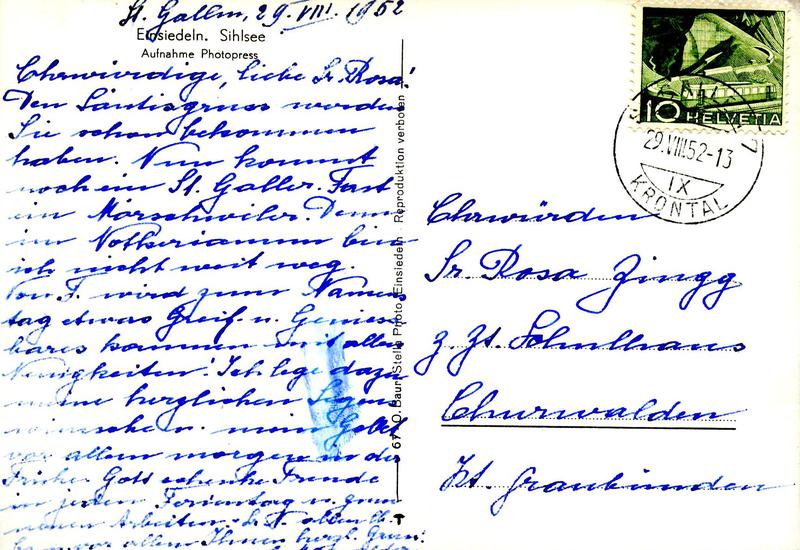 St. Gallen, 29. VIII. 1952
Einsiedeln. Sihlsee
Aufnahme Photopress
Ehrwürdige, liebe Sr. Rosa!
Den Säntisgruss werden
Sie schon bekommen
haben. Nun kommt
noch ein St. Galler. Fast
ein Mörschwiler. Denn
im Notkerianum bin
ich nicht weit weg.
Von F. wird zum Namens
tag etwas Greif- u. Geniess
bares kommen mit allen
Neuigkeiten! Ich lege dazu
meine herzlichen Segens
wünsche u. mein Gebet
vor allem morgen in der
Frühe. Gott schenke Freude
in jeden Ferientag u.
neuen Arbeiten.
vor allem Ihnen herzl.
67 O. Baur, Stelle Photo, Einsiedeln Reproduktion verboten
10 HELVETIA
29.VIII.52-13
IX
KRONTAL
Ehrwürden
Sr. Rosa Zingg
z. Zt. Schulhaus
Churwalden
Kt. Graubünden